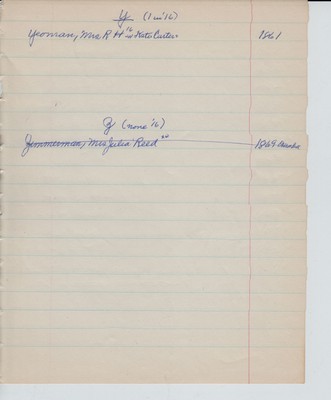 Y (1 in '16)
Yeoman, Mrs R H Kate Carter 1861
Z (none '16)
Zimmerman, Mrs Julia Reed 1869